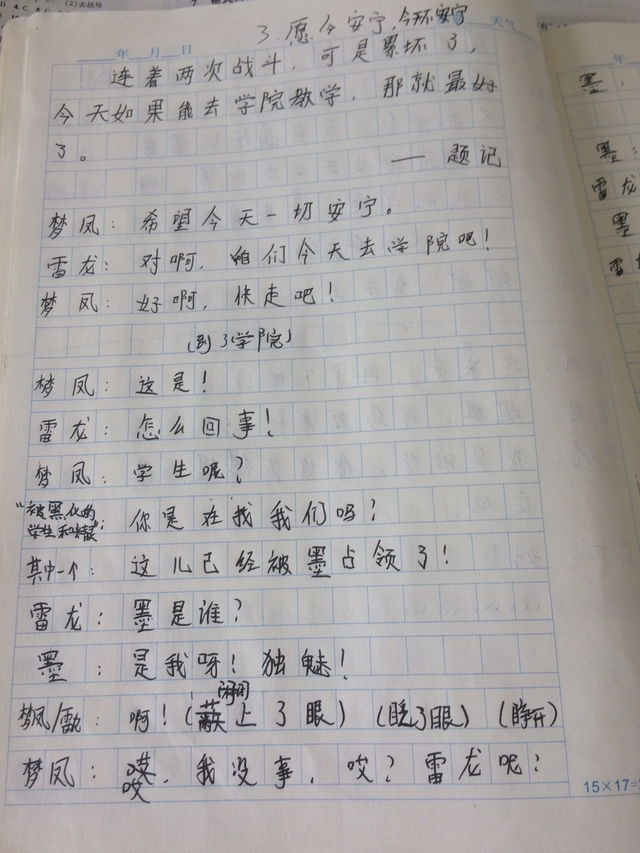 3. 愿今安宁,今不安宁
天气
年 月 日
连着两次战斗，可是累坏了，
今天如果能去学院教学，那就最好
了。
—— 题记
梦凤：希望今天一切安宁。
雷龙：对啊，咱们今天去学院吧！
梦凤：好啊，快走吧！
(到了学院)
梦凤：这是！
雷龙：怎么回事！
梦凤：学生呢？
"被黑化的学生和精灵"：你是在找我们吗？
其中一个：这儿已经被墨占领了！
雷龙：墨是谁？
墨：是我呀！独魅！
梦凤/雷龙：啊！(闭上了眼) (睁了眼) (睁开)
梦凤：哎，我没事，哎？雷龙呢？
15×17=
墨：
墨：
雷龙
墨
雷